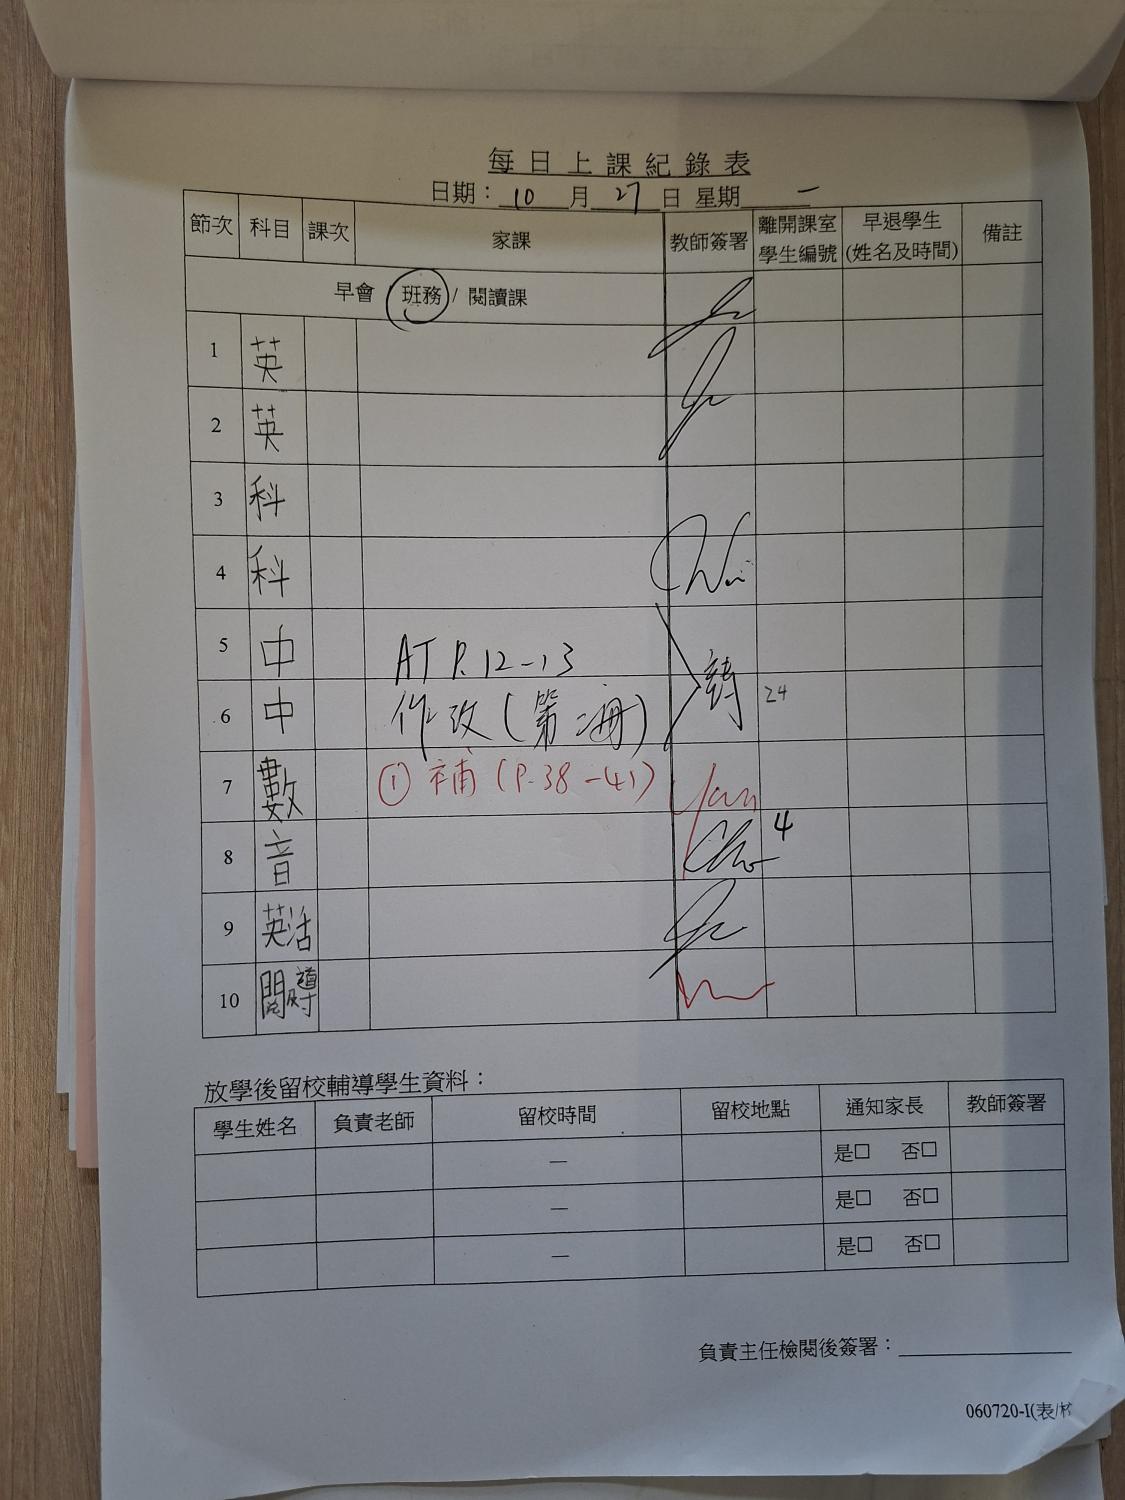 每日上課紀錄表
日期：10月27日 星期一
節次 科目 課次 家課 教師簽署 離開課室學生編號 早退學生(姓名及時間) 備註
早會 班務 / 閱讀課
1 英
2 英
3 科
4 科
5 中 AT P.12-13
6 中 作改(第二冊) 24
7 數 ① 補(P.38-41) Yan
8 音 4
9 英活
10 閱導
放學後留校輔導學生資料：
學生姓名 負責老師 留校時間 留校地點 通知家長 教師簽署
— 是□ 否□
— 是□ 否□
— 是□ 否□
負責主任檢閱後簽署：
060720-I(表/校